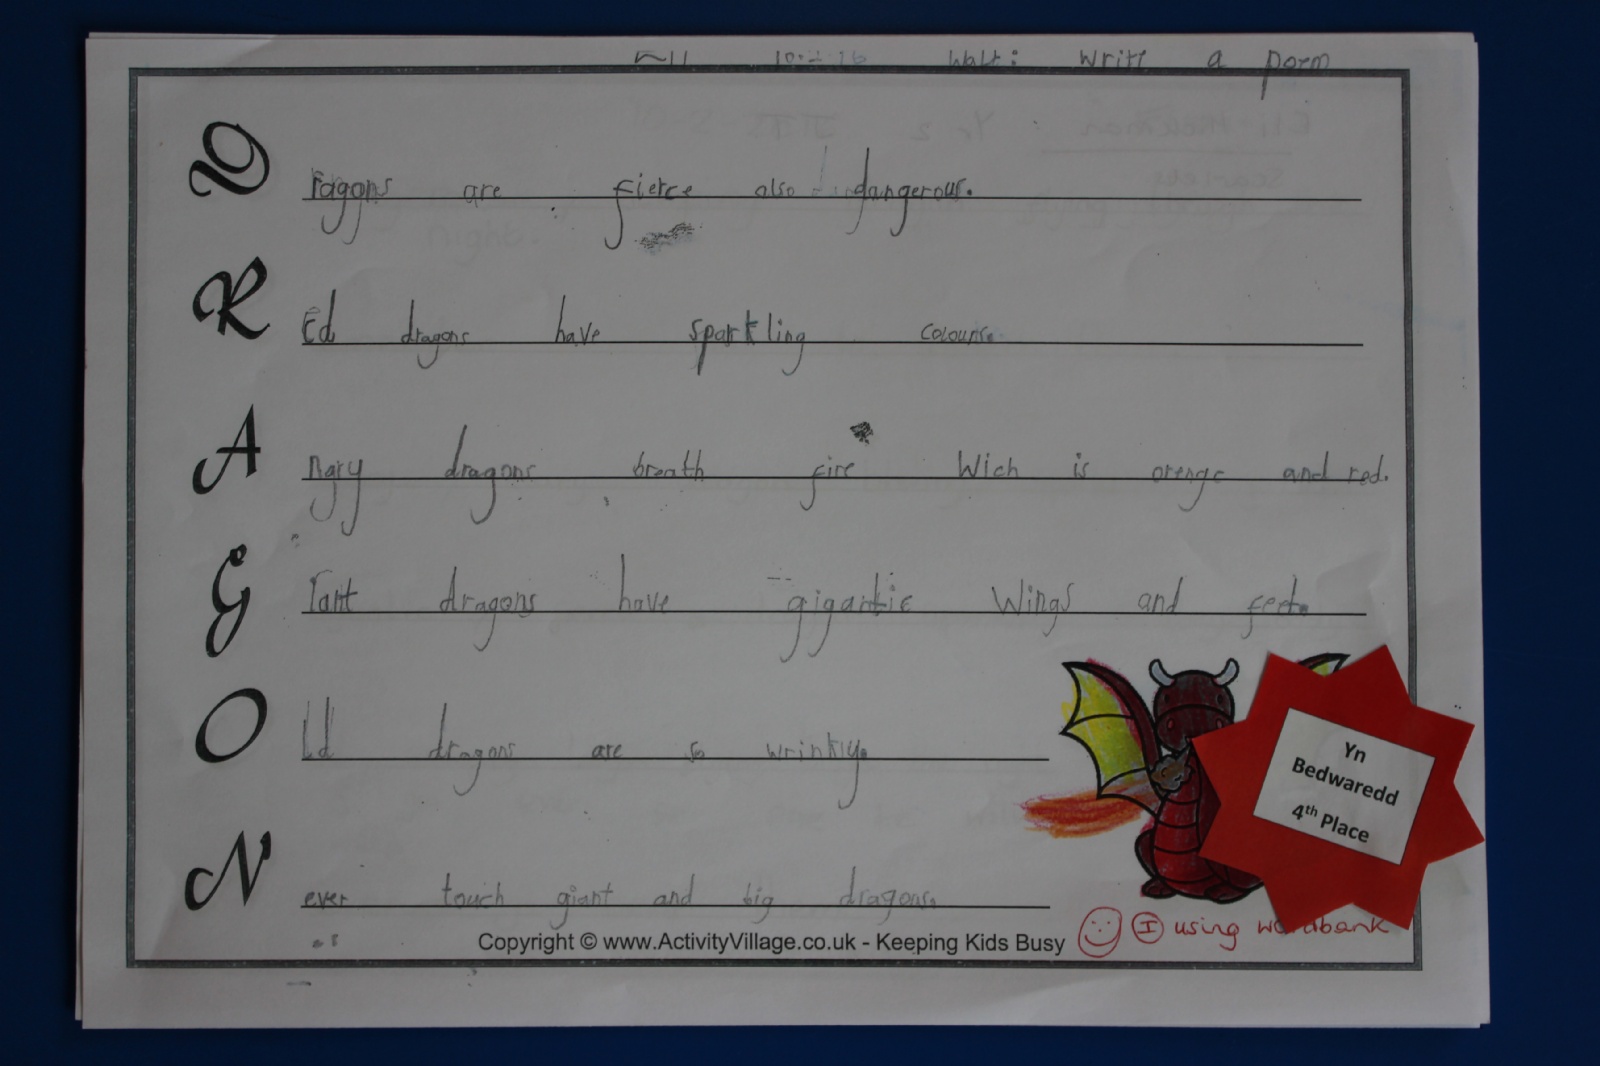 Walt: Write a poem
D ragons are fierce also dangerous.
R Ed dragons have sparkling colours.
A ngry dragons breath fire Wich is orenge and red.
G Iant dragons have gigantic Wings and feet.
O Ld dragons are so wrinkly.
N ever touch giant and big dragons.
Yn
Bedwaredd
4th Place
I using wordbank
Copyright © www.ActivityVillage.co.uk - Keeping Kids Busy